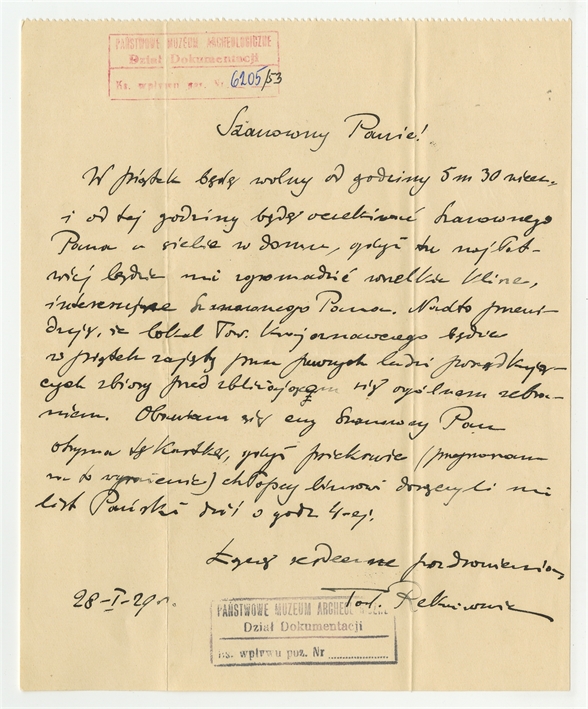 PAŃSTWOWE MUZEUM ARCHEOLOGICZNE
Dział Dokumentacji
Ks. wpływu poz. Nr 6205/53
Szanowny Panie!
W piątek będę wolny od godziny 5 m 30 wiecz.
i od tej godziny będę oczekiwać Szanownego
Pana u siebie w domu, gdyż tu najłat-
wiej będzie mi zgromadzić wszelkie klisze,
interesujące Szanownego Pana. Nadto przewi-
duję, że lokal Tow. Krajoznawczego będzie
w piątek zajęty przez pewnych ludzi porządkują-
cych zbiory przed zbliżającem się ogólnem zebra-
niem. Obawiam się czy Szanowny Pan
otrzyma tę kartkę, gdyż (
na to wyrażenie) chłopcy biurowi doręczyli mi
list Pański dziś o godz 4-ej.
Łączę serdeczne pozdrowienia
28-I-29 r.
PAŃSTWOWE MUZEUM ARCHEOLOGICZNE
Dział Dokumentacji
Ks. wpływu poz. Nr